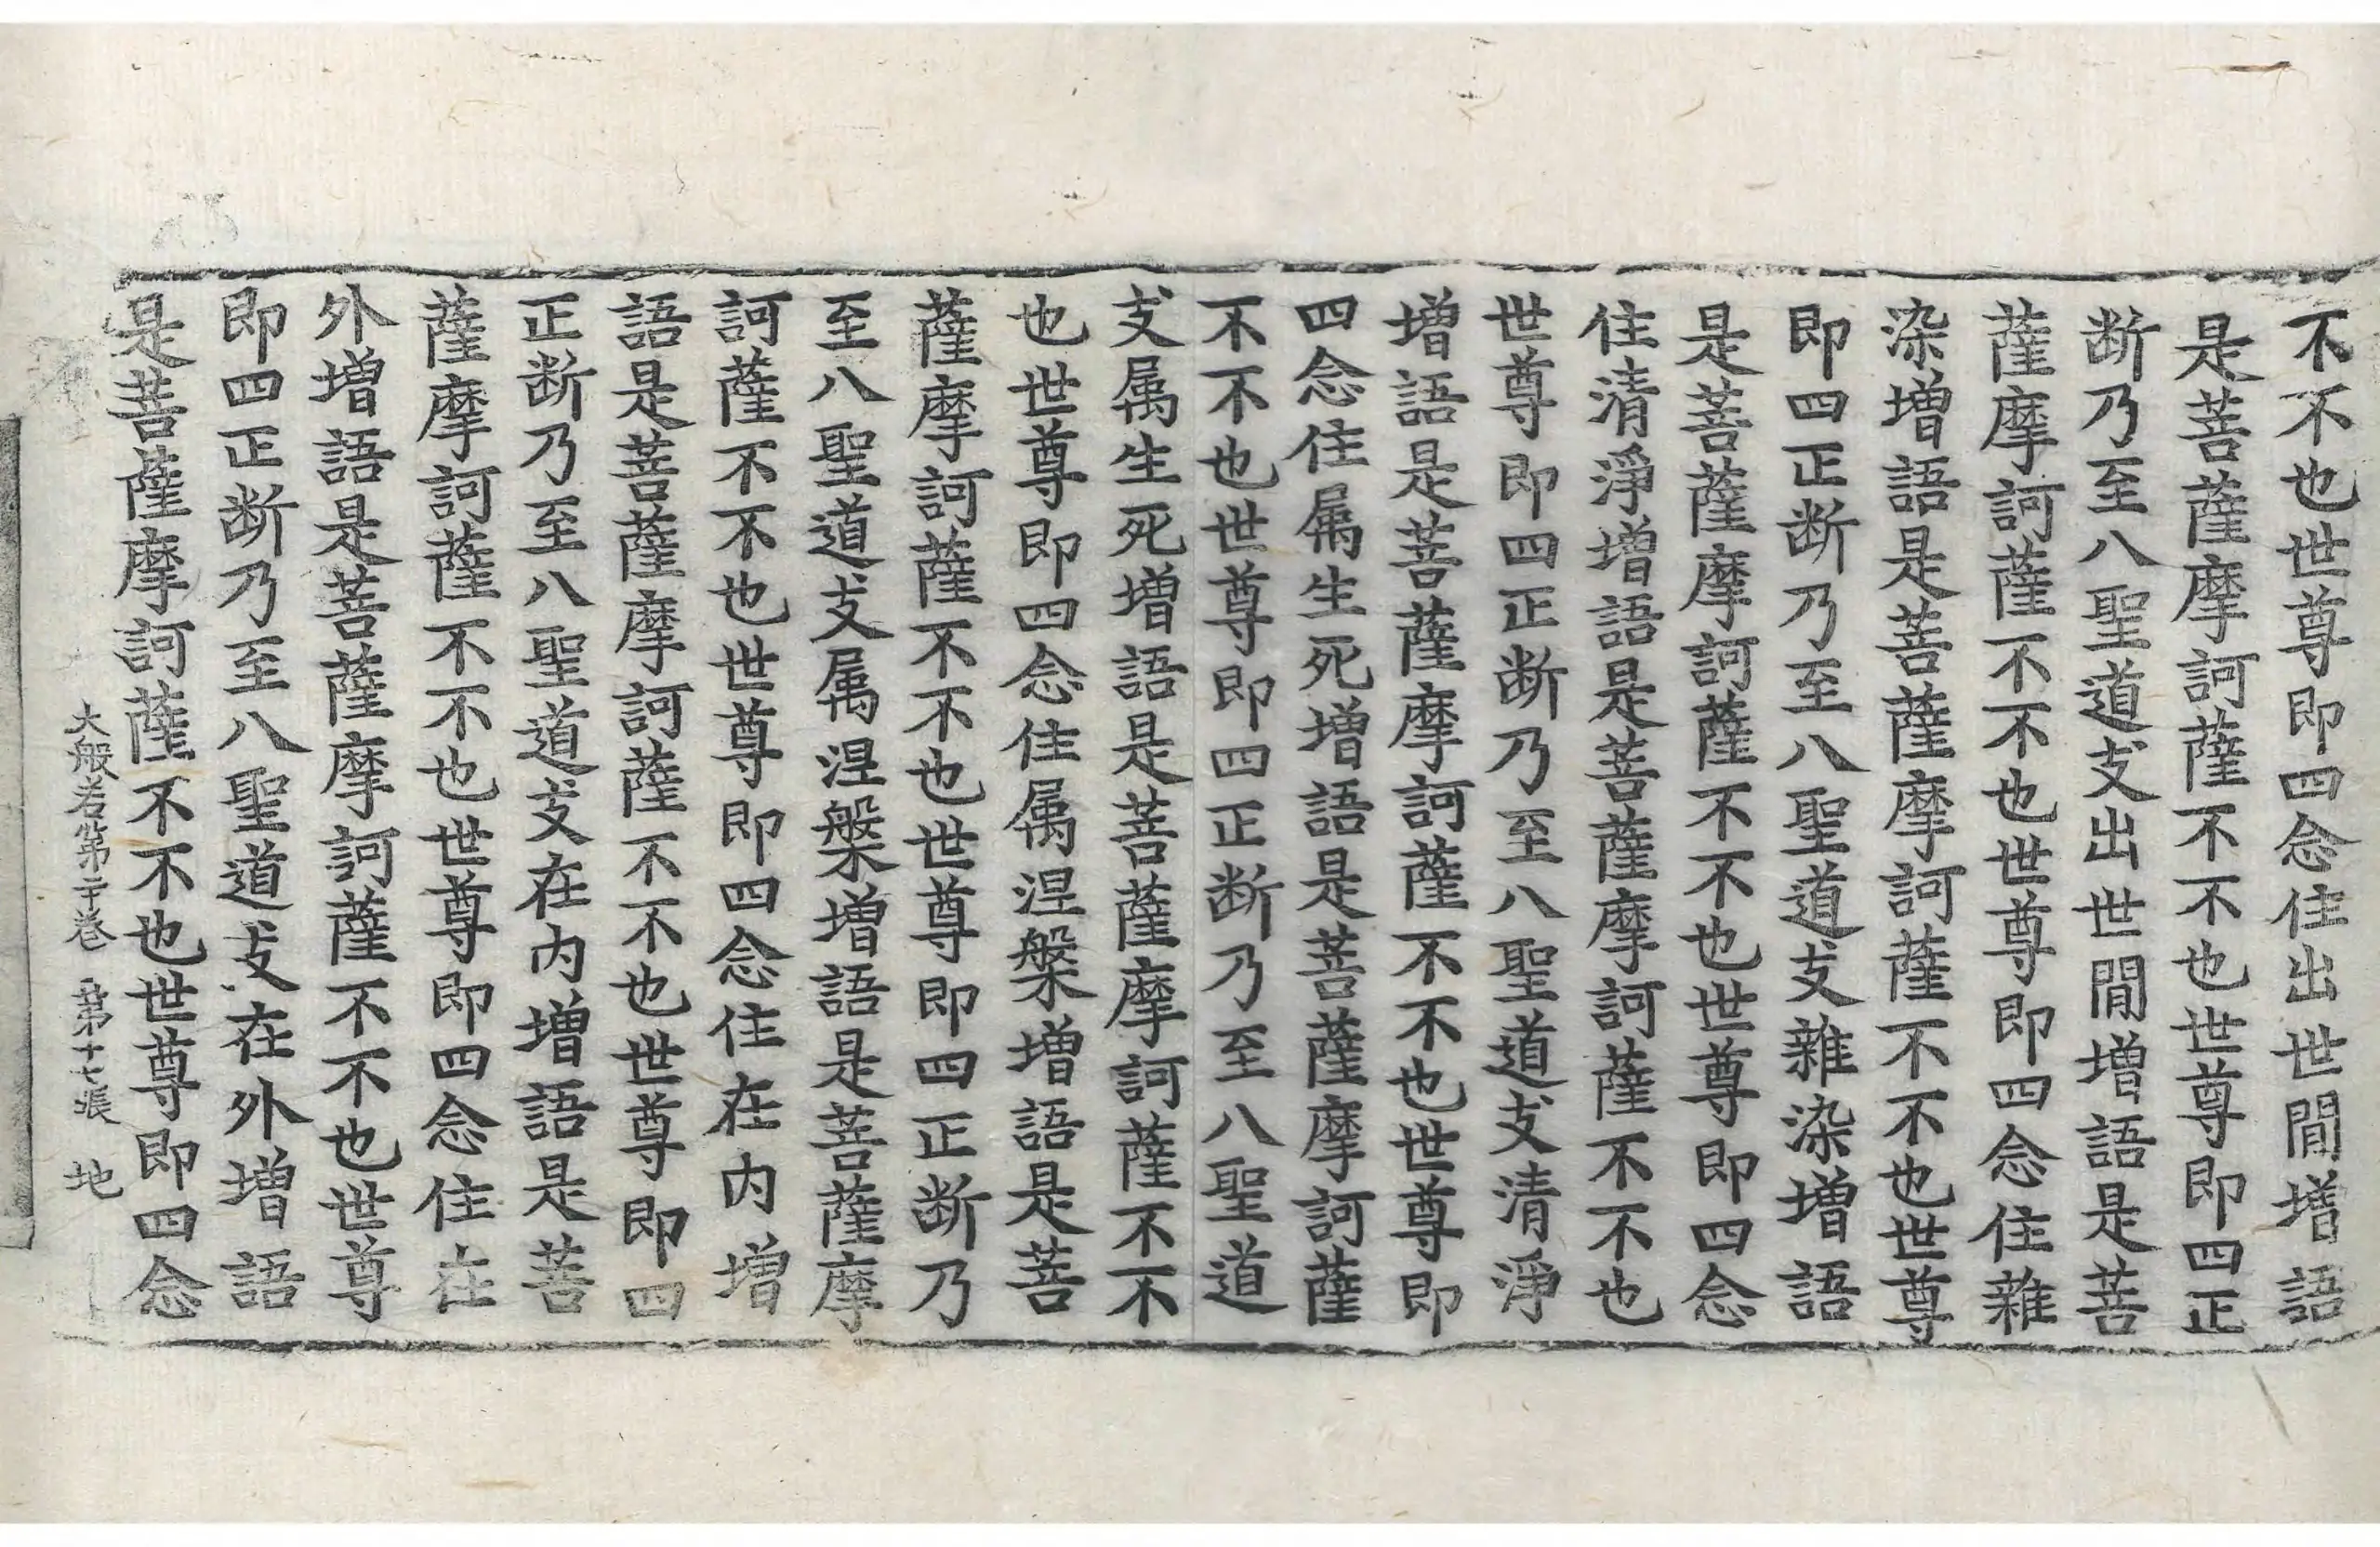 不不也世尊即四念住出世間增語
是菩薩摩訶薩不不也世尊即四正
断乃至八聖道支出世間增語是菩
薩摩訶薩不不也世尊即四念住雜
染增語是菩薩摩訶薩不不也世尊
即四正断乃至八聖道支雜染增語
是菩薩摩訶薩不不也世尊即四念
住清淨增語是菩薩摩訶薩不不也
世尊即四正断乃至八聖道支清淨
增語是菩薩摩訶薩不不也世尊即
四念住属生死增語是菩薩摩訶薩
不不也世尊即四正断乃至八聖道
支属生死增語是菩薩摩訶薩不不
也世尊即四念住属涅槃增語是菩
薩摩訶薩不不也世尊即四正断乃
至八聖道支属涅槃增語是菩薩摩
訶薩不不也世尊即四念住在内增
語是菩薩摩訶薩不不也世尊即四
正断乃至八聖道支在内增語是菩
薩摩訶薩不不也世尊即四念住在
外增語是菩薩摩訶薩不不也世尊
即四正断乃至八聖道支在外增語
是菩薩摩訶薩不不也世尊即四念
大般若第二十卷 第十七張 地